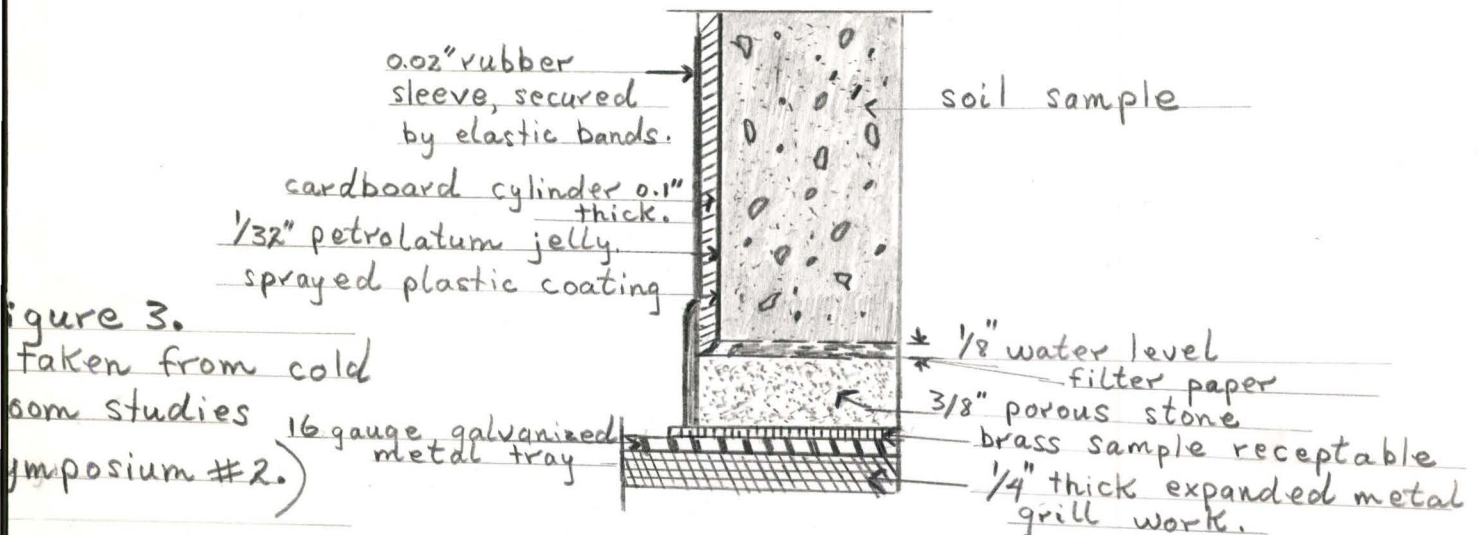 0.02" rubber
sleeve, secured
by elastic bands.
cardboard cylinder 0.1"
thick.
1/32" petrolatum jelly.
sprayed plastic coating
soil sample
igure 3.
taken from cold
oom studies
ymposium #2.)
16 gauge galvanized
metal tray
1/8" water level
filter paper
3/8" porous stone
brass sample receptable
1/4" thick expanded metal
grill work.